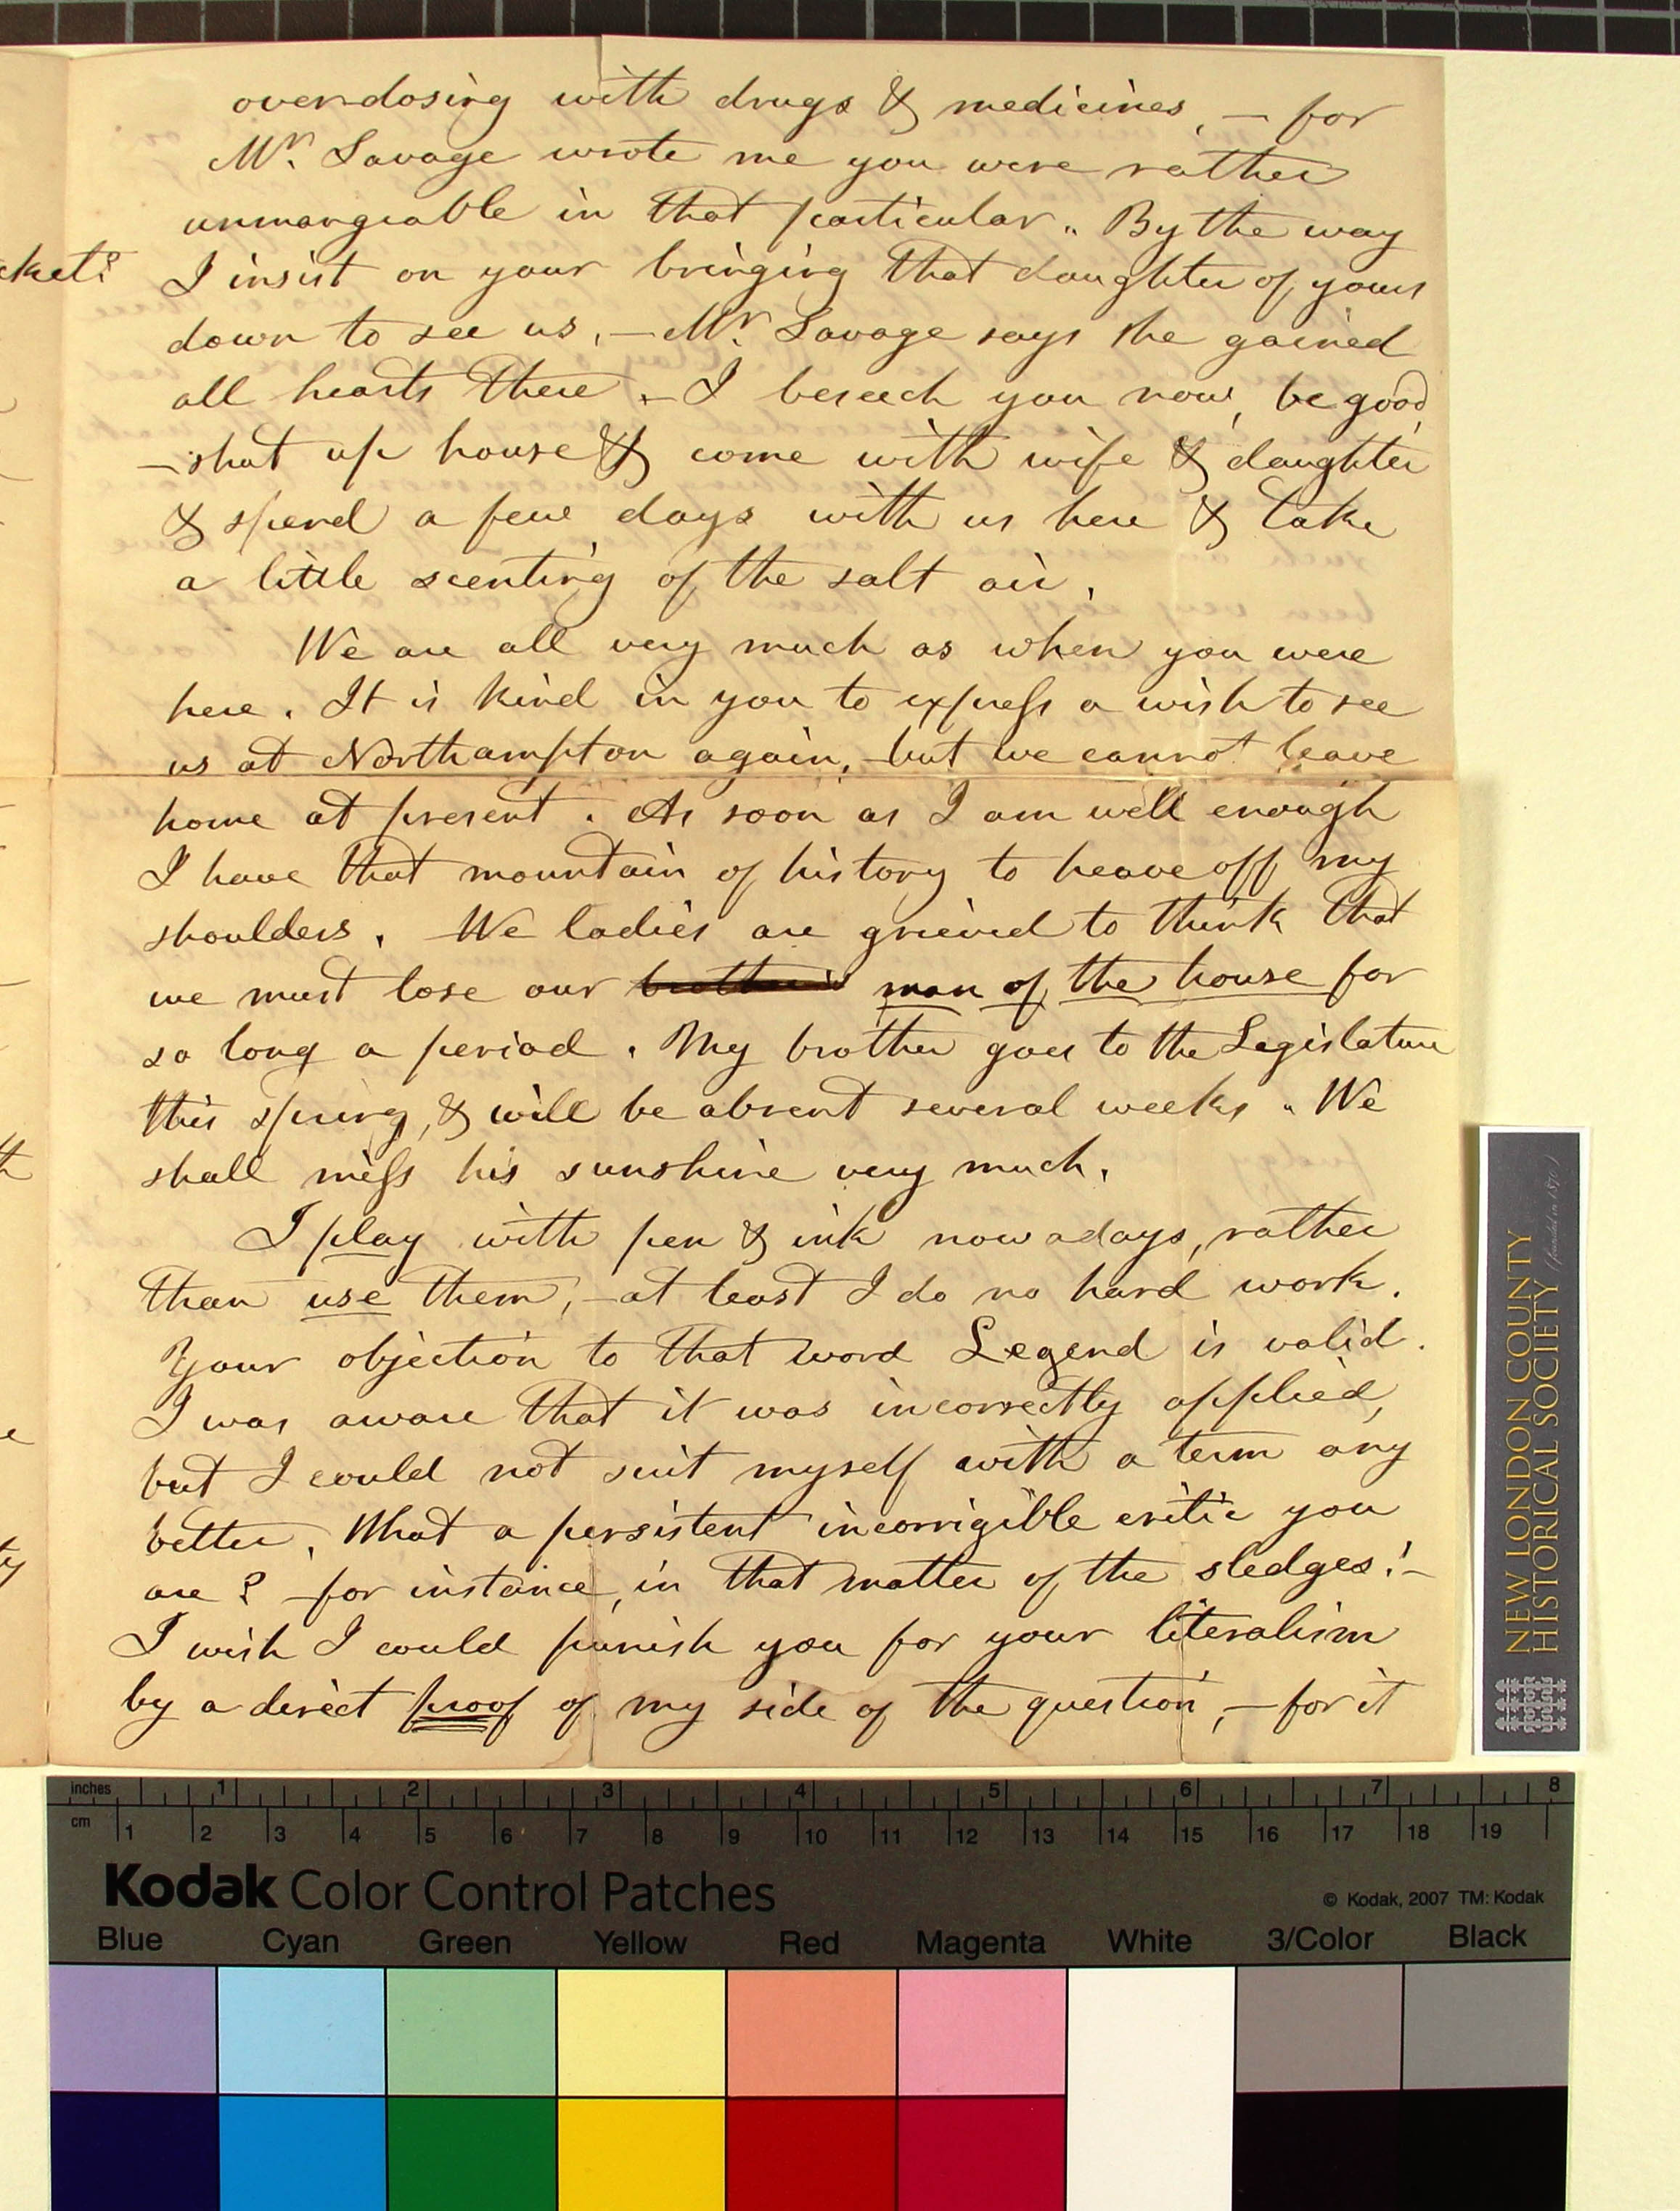 overdosing with drugs & medicines, – for
Mr. Savage wrote me you were rather
unmangeable in that particular. By the way
cket?
I insist on your bringing that daughter of yours
down to see us, – Mr. Savage says she gained
all hearts there. – I beseech you now, be good,
– shut up house & come with wife & daughter
& spend a few days with us here & take
a little scenting of the salt air.
We are all very much as when you were
here. It is kind in you to express a wish to see
us at Northampton again, – but we cannot leave
home at present. As soon as I am well enough
I have that mountain of history to heave off my
shoulders. We ladies are grieved to think that
we must lose our brother's man of the house for
so long a period. My brother goes to the Legislature
this spring, & will be absent several weeks. We
shall miss his sunshine very much.
I play with pen & ink now adays, rather
than use them, – at least I do no hard work.
Your objection to that word Legend is valid.
I was aware that it was incorrectly applied,
but I could not suit myself with a term any
better. What a persistent incorrigible critic you
are? – for instance, in that matter of the sledges! –
I wish I could punish you for your literalism
by a direct proof of my side of the question, – for it
th
e
ty
NEW LONDON COUNTY
HISTORICAL SOCIETY (founded in 1870)
inches 1 2 3 4 5 6 7 8
cm 1 2 3 4 5 6 7 8 9 10 11 12 13 14 15 16 17 18 19
Kodak Color Control Patches
© Kodak, 2007 TM: Kodak
Blue Cyan Green Yellow Red Magenta White 3/Color Black